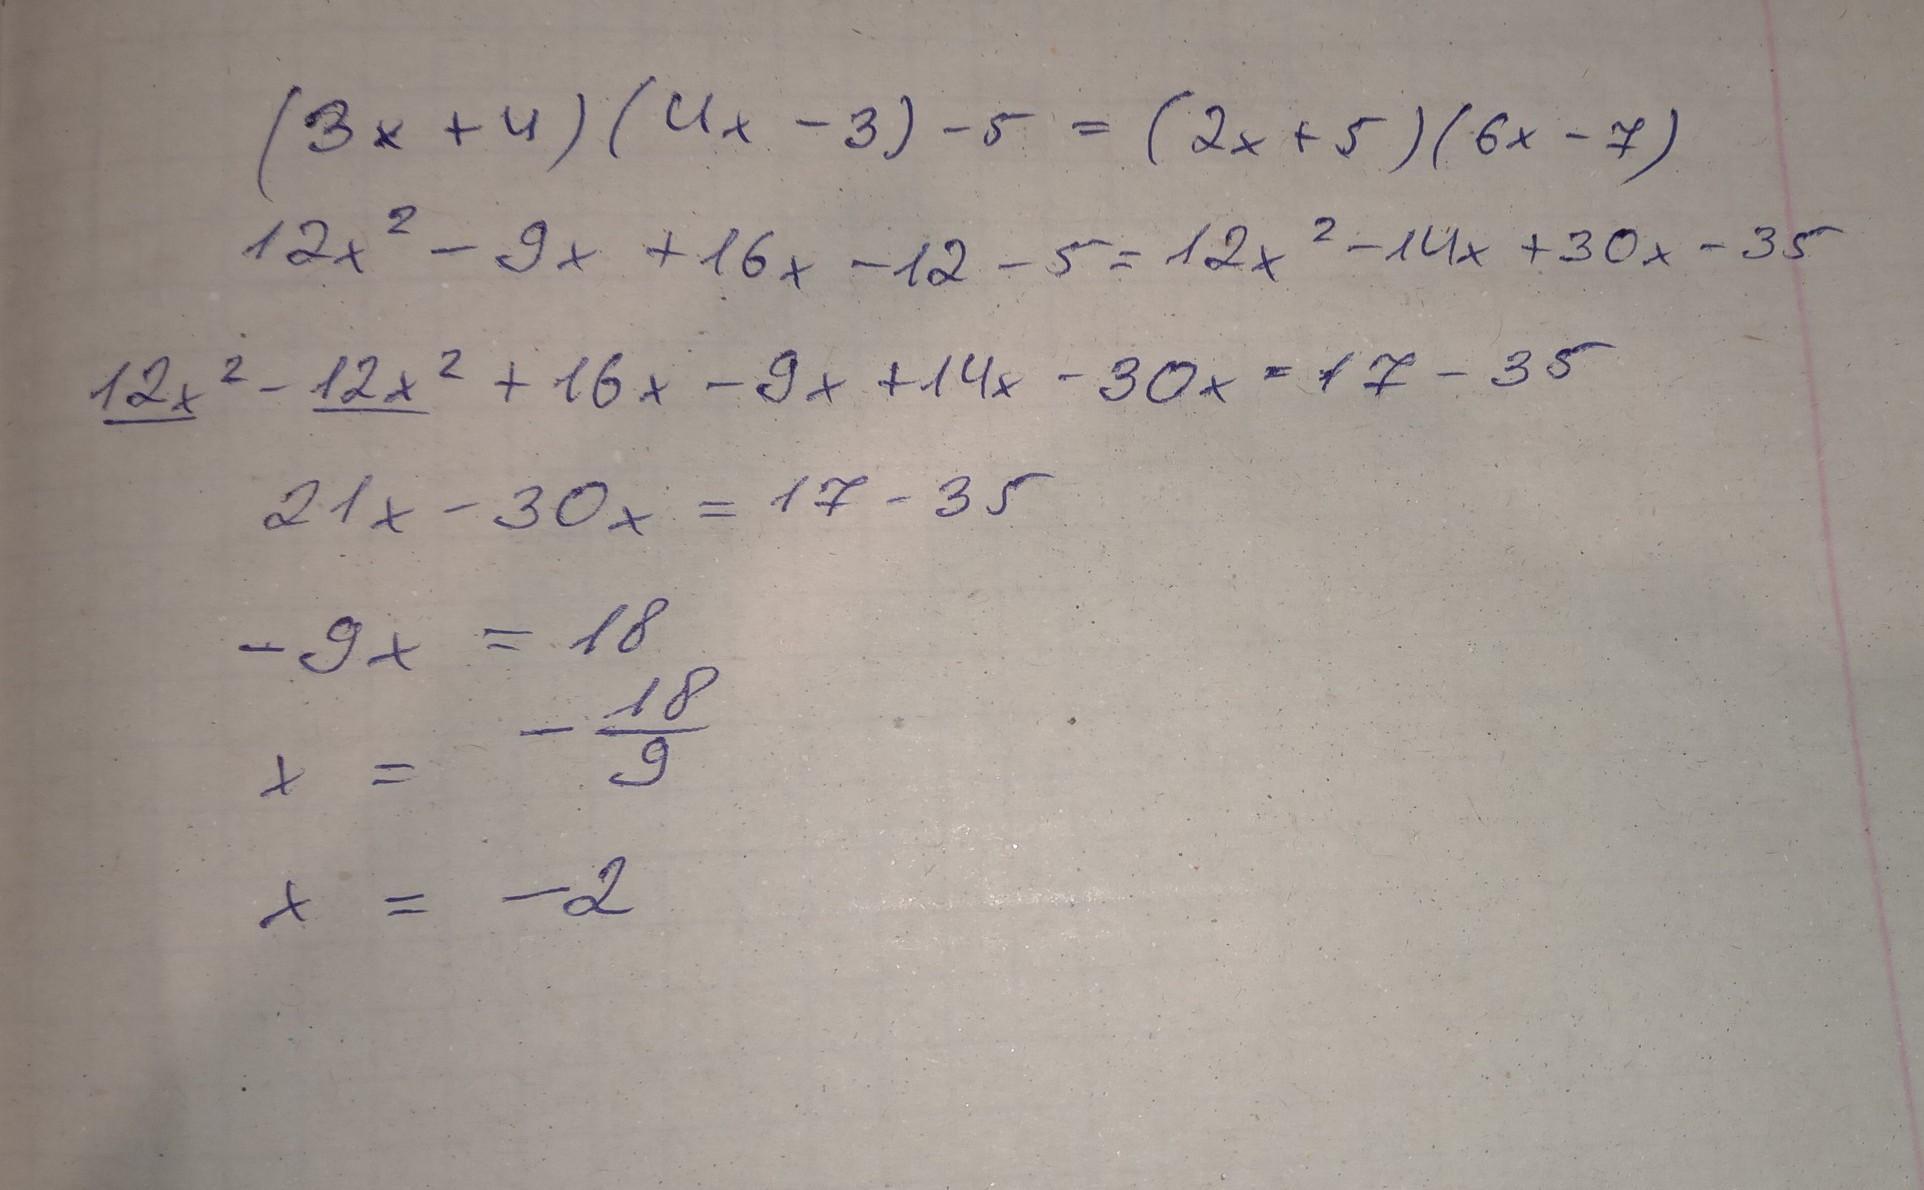 (3x + 4)(4x - 3) - 5 = (2x + 5)(6x - 7)
12x² - 9x + 16x - 12 - 5 = 12x² - 14x + 30x - 35
12x² - 12x² + 16x - 9x + 14x - 30x = 17 - 35
21x - 30x = 17 - 35
- 9x = 18
x = - 18/9
x = - 2